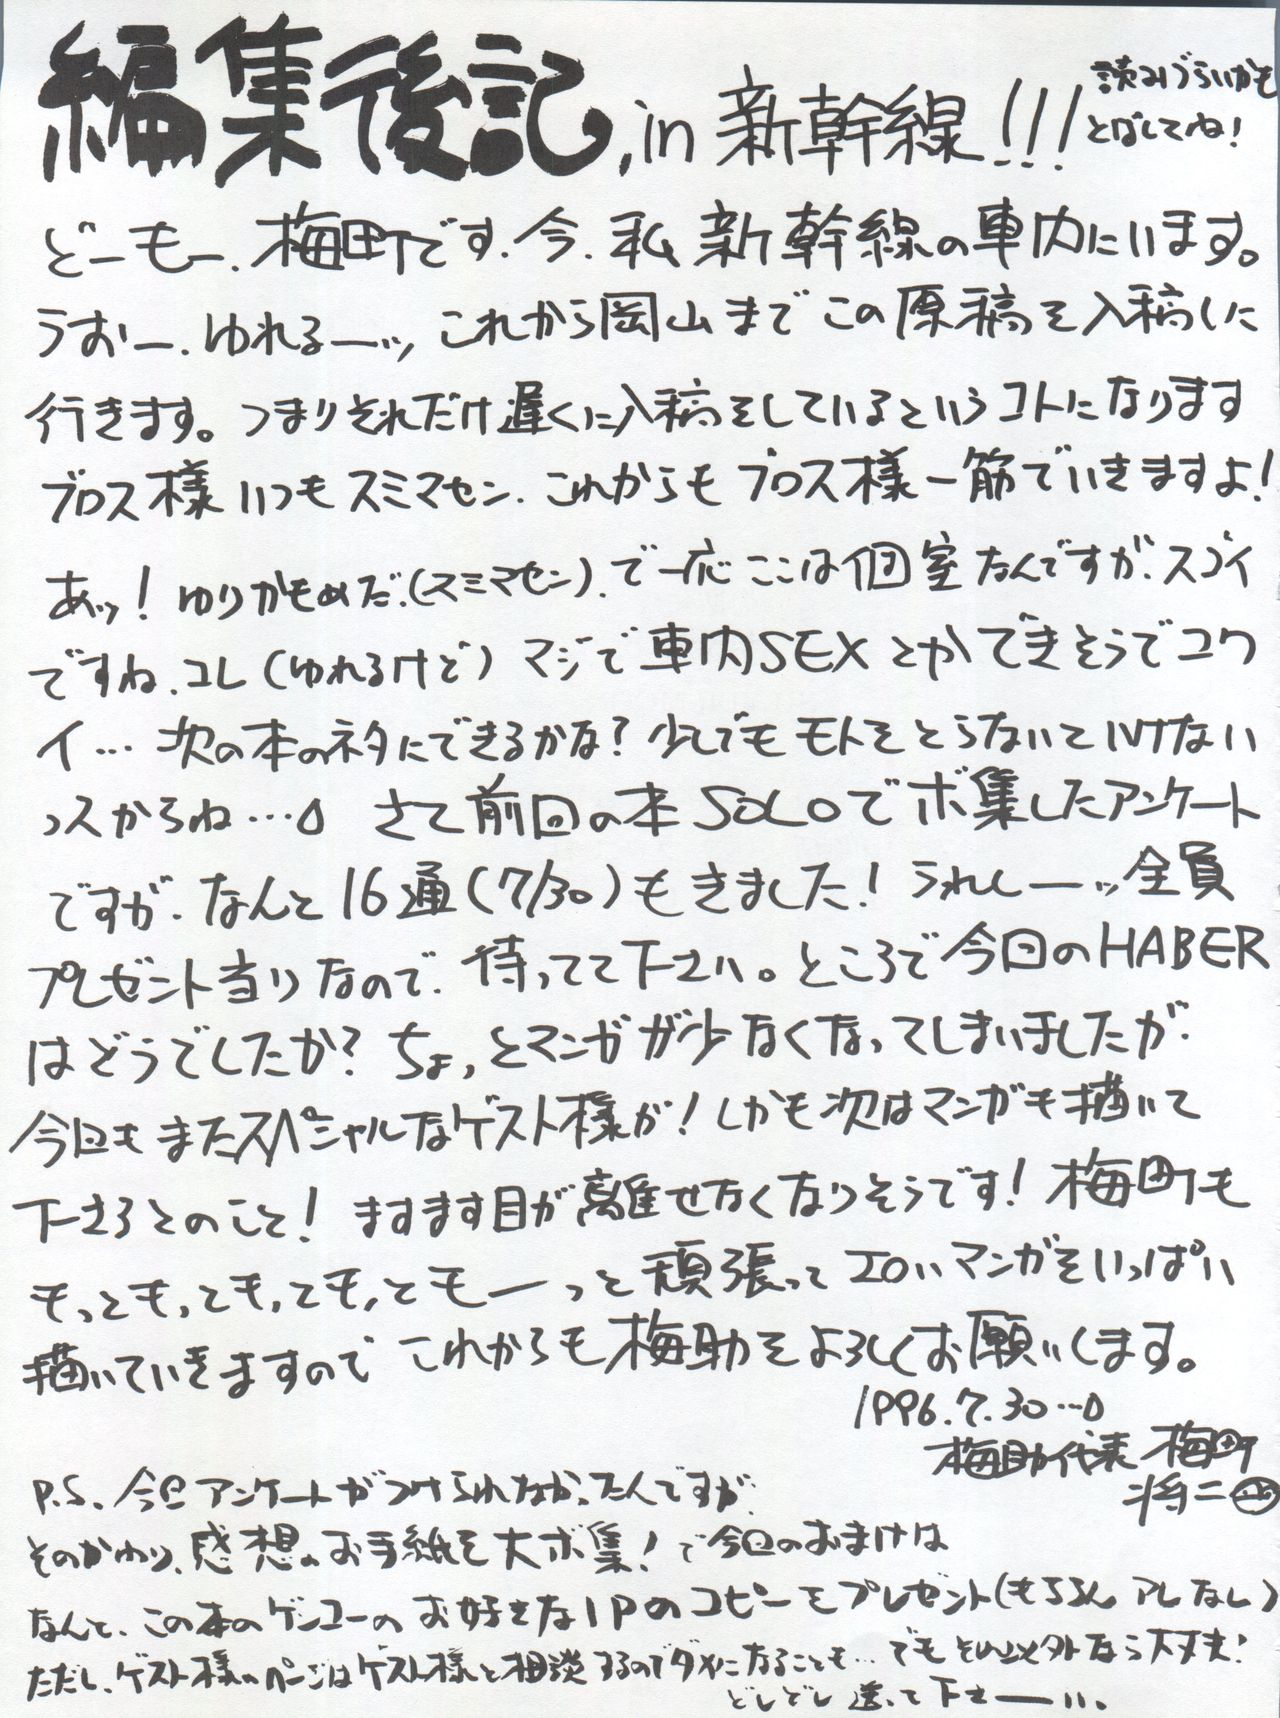 編集後記, in 新幹線!!!
読みづらいかも
とばしてね!
どーもー.梅町です.今.私新幹線の車内にいます。
うおー.ゆれるーッ これから岡山までこの原稿を入稿しに
行きます。つまりそれだけ遅くに入稿をしているというコトになります
ブロス様いつもスミマセン.これからもブロス様一筋でいきますよ!
あッ!ゆりかもめだ.(スミマセン).で一応ここは個室なんですが.スゴイ
ですね.コレ(ゆれるけど)マジで車内SEXとかできそうでコワ
イ…次の本のネタにできるかな?少しでもモトをとらないといけない
っスからね… さて前回の本SOLOでボ集したアンケート
ですが.なんと16通(7/30)もきました!うれしーッ全員
プレゼント当りなので.待ってて下さい。ところで今回のHABER
はどうでしたか?ちょっとマンガが少なくなってしまいましたが.
今回もまたスペシャルなゲスト様が!しかも次はマンガも描いて
下さるとのこと!ますます目が離せなくなりそうです!梅町も
もっともっともっともっともーっと頑張ってエロいマンガをいっぱい
描いていきますので これからも梅助をよろしくお願いします。
1996.7.30…
梅助代表 梅町
将二
P.S. 今回アンケートがつけられなかったんですが.
そのかわり、感想のお手紙を大ボ集!で今回のおまけは
なんと、この本のゲンコーのお好きな1Pのコピーをプレゼント(もちろんアレなし)
ただし、ゲスト様のページはゲスト様と相談するのでダメになることも…でもそれ以外なら大丈夫!
どしどし送って下さーい。